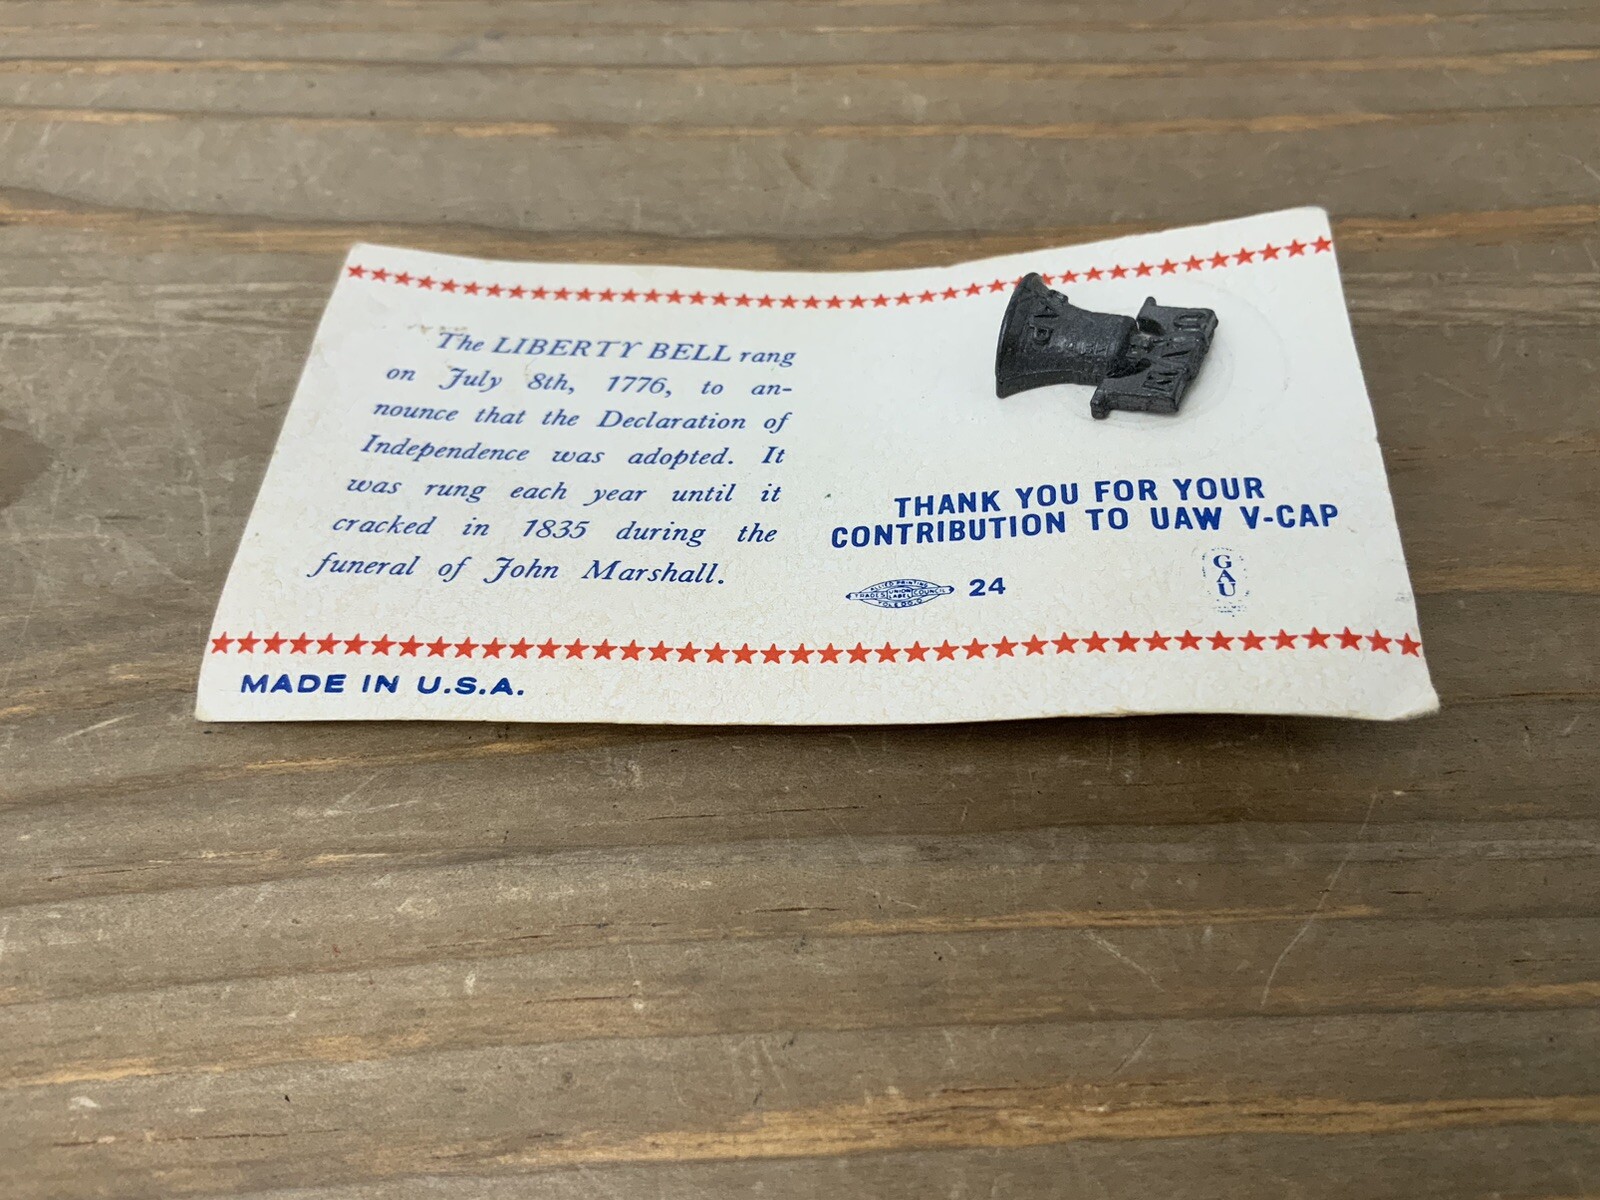 The LIBERTY BELL rang
on July 8th, 1776, to an-
nounce that the Declaration of
Independence was adopted. It
was rung each year until it
cracked in 1835 during the
funeral of John Marshall.
UAW
AP
THANK YOU FOR YOUR
CONTRIBUTION TO UAW V-CAP
ALLIED PRINTING
TRADES UNION LABEL COUNCIL
TOLEDO, O
24
GAU
MADE IN U.S.A.